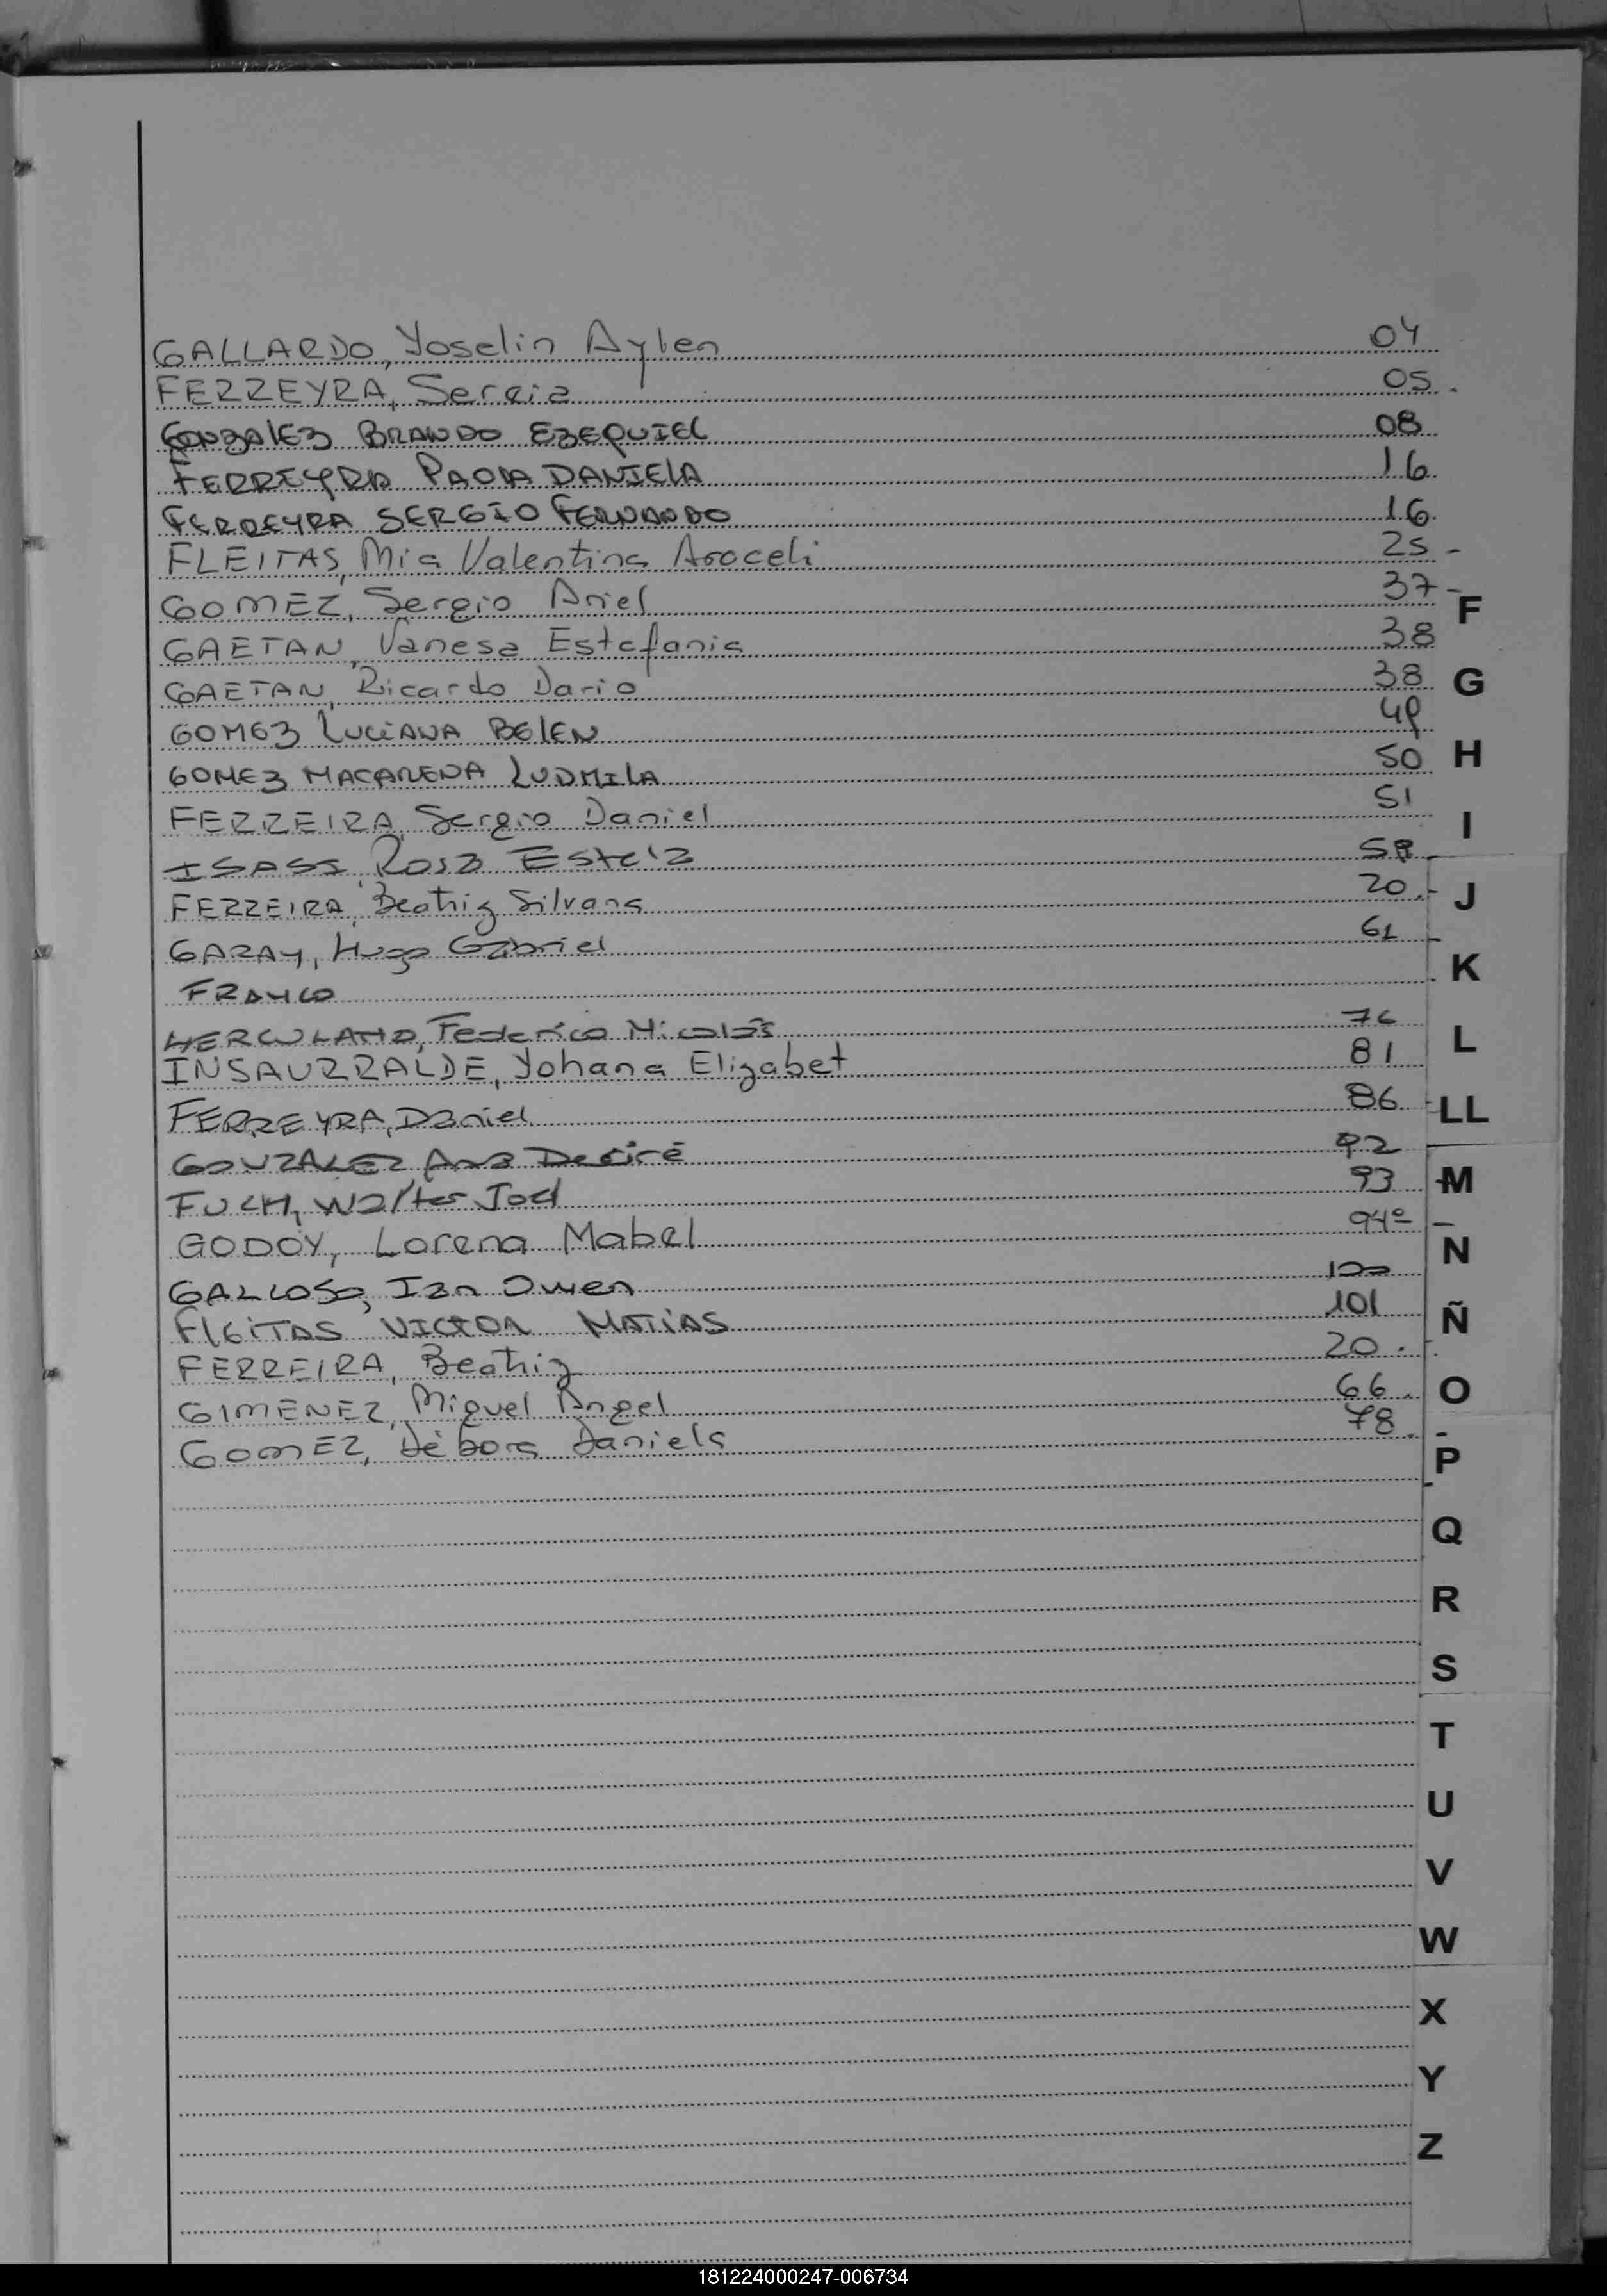 GALLARDO, Yoselin Aylen 04
FERREYRA, Sergio 05.
GONZALEZ BRANDO EZEQUIEL 08
FERREYRA PAOLA DANIELA 16
FERREYRA SERGIO FERNANDO 16
FLEITAS, Mia Valentina Aroceli 25 -
GOMEZ, Sergio Ariel 37 -
F
GAETAN, Vanesa Estefania 38
GAETAN, Ricardo Dario 38
G
GOMEZ LUCIANA BELEN 49
GOMEZ MACARENA LUDMILA 50
H
FERREIRA, Sergio Daniel 51
I
ISASI, Rosa Estela
FERREIRA, Beatriz Silvana 20.-
J
GARAY, Hugo Gabriel 61
FRANCO
K
HERCULANO, Federico Nicolás 76
L
INSAURRALDE, Yohana Elizabet 81
FERREYRA, Daniel 86
LL
GONZALEZ Ana Desiré 92
FUCH, Walter Joel 93
M
GODOY, Lorena Mabel 94º
N
GALLOSO, Ian Owen 100
FLEITAS VICTOR MATIAS 101
Ñ
FERREIRA, Beatriz 20.
GIMENEZ, Miguel Angel 66.
O
GOMEZ, Dèbora Daniela 78.
P
Q
R
S
T
U
V
W
X
Y
Z
181224000247-006734